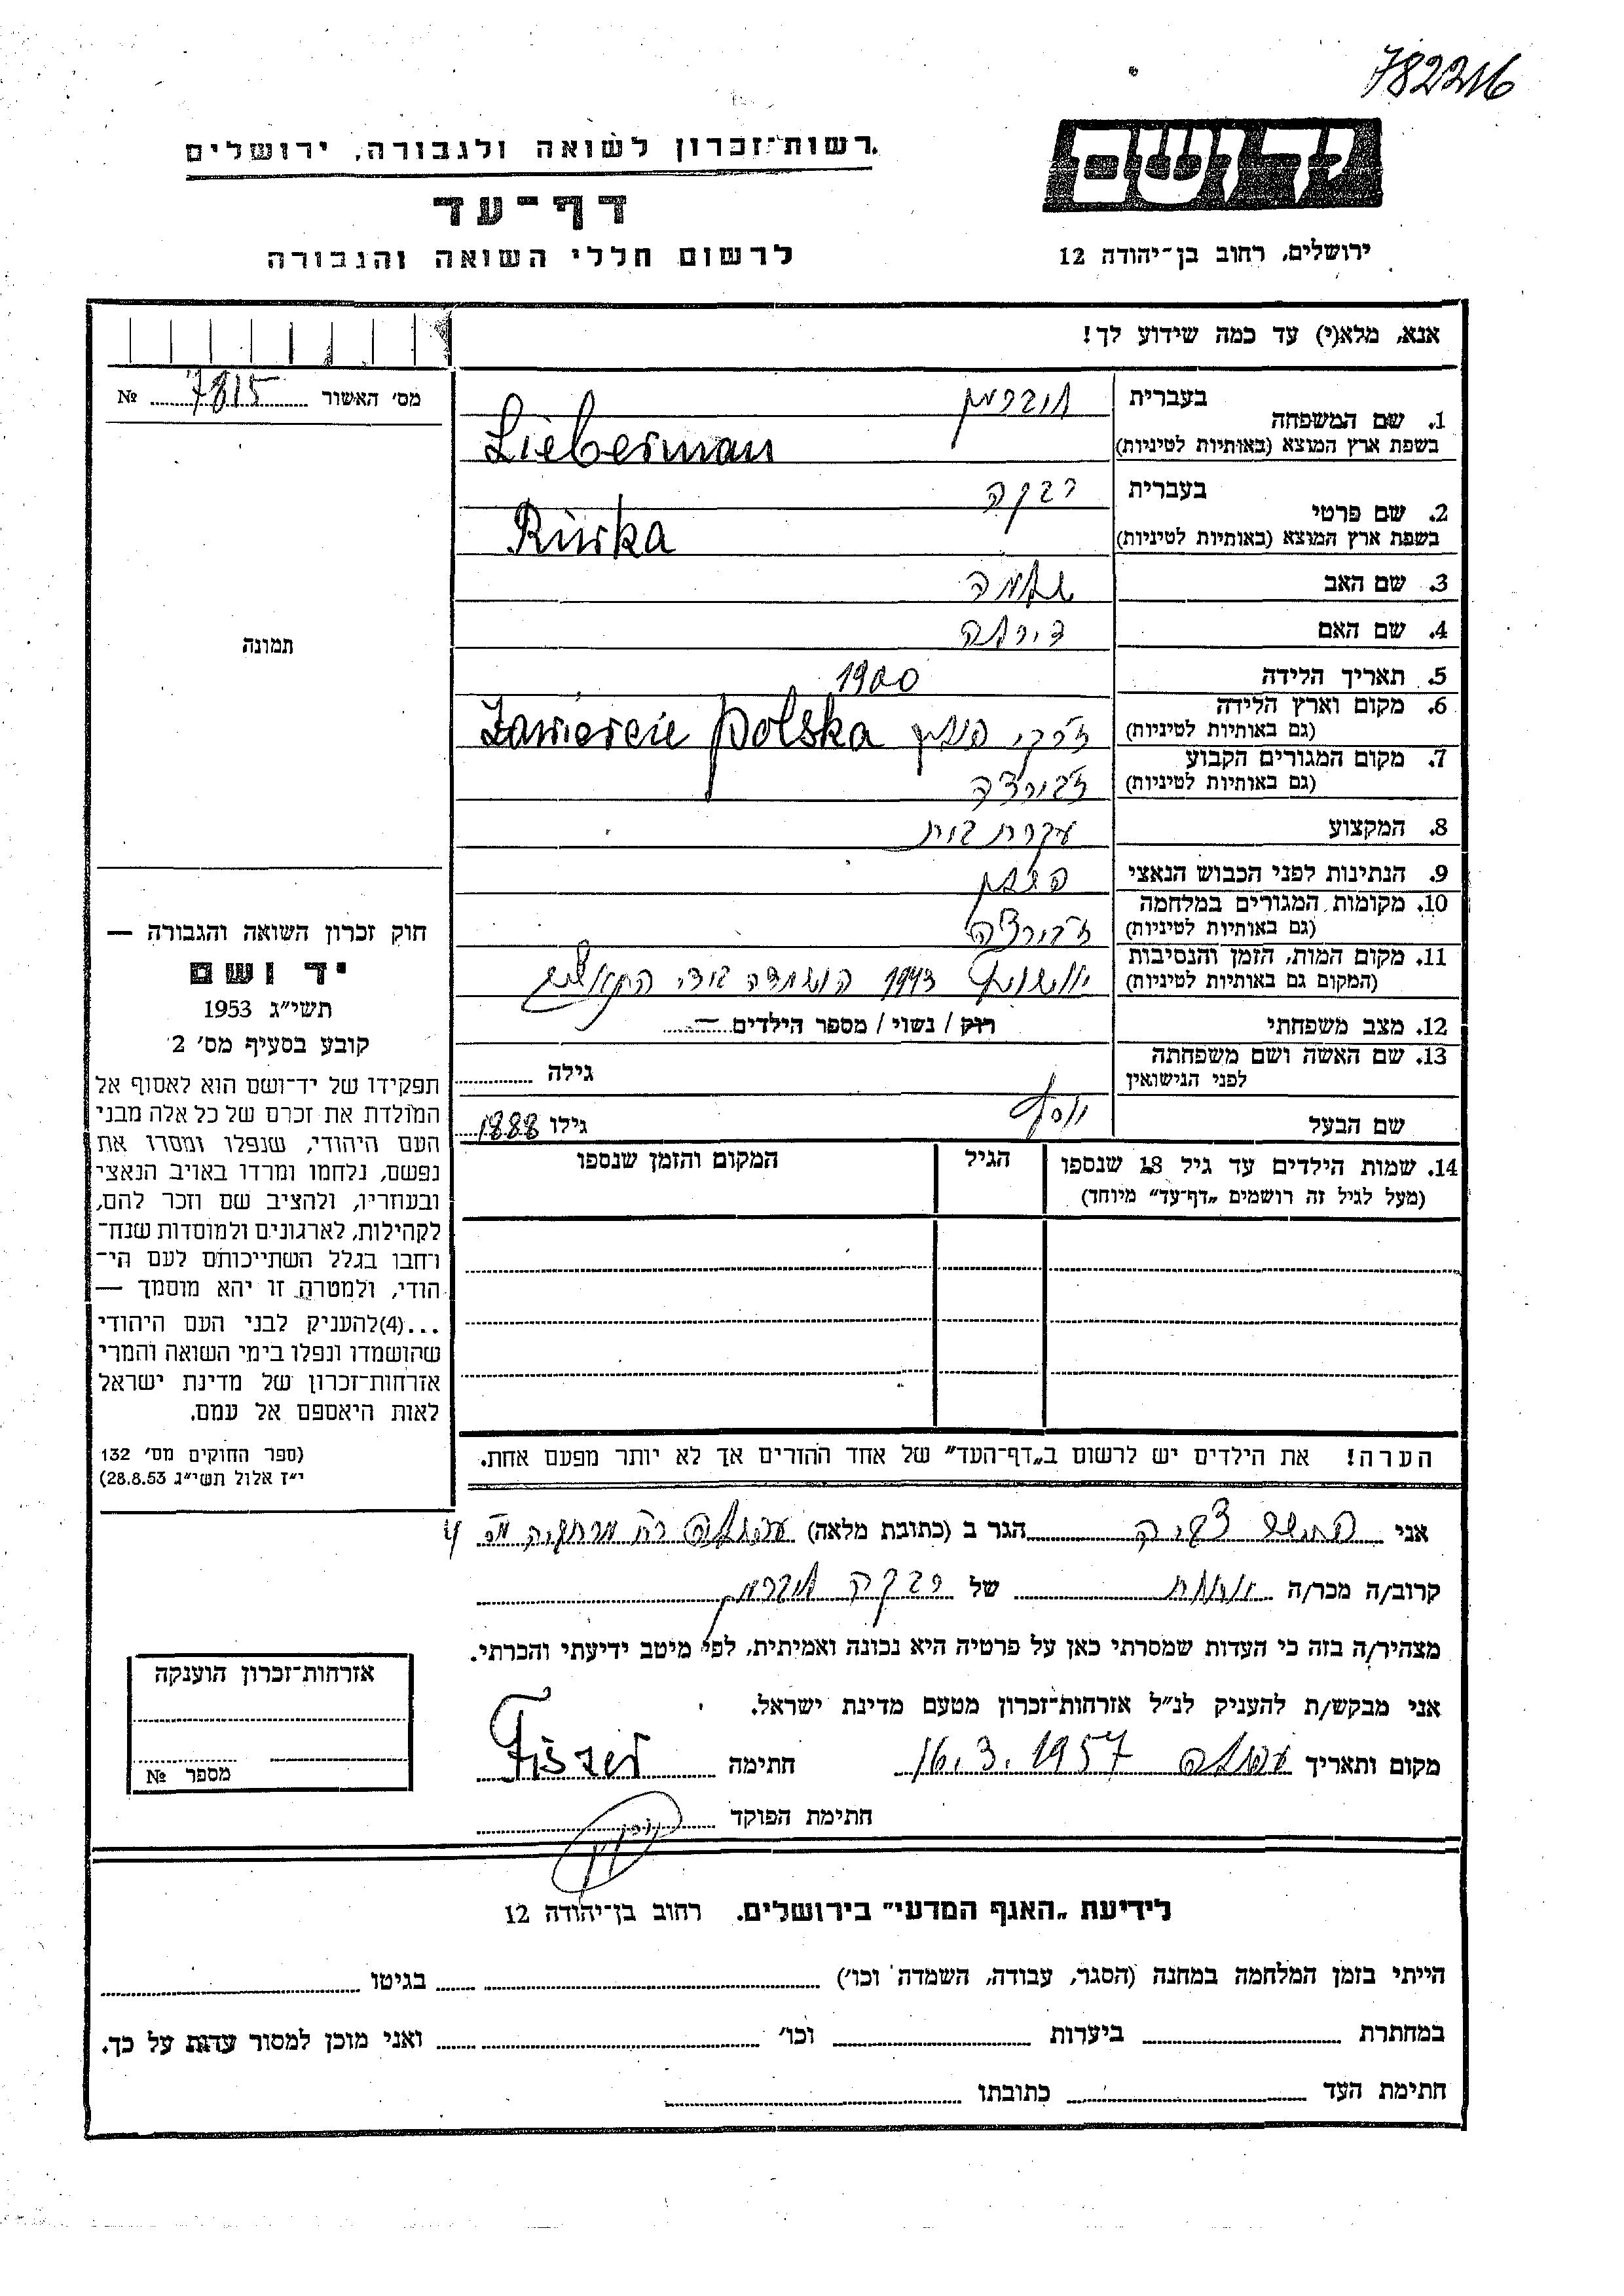 782216
רשות־זכרון לשואה ולגבורה, ירושלים.
דף־עד
לרשום חללי השואה והגבורה
יד ושם
ירושלים, רחוב בן־יהודה 12
אנא, מלא(י) עד כמה שידוע לך!
מס׳ האשור 7815 №
תמונה
1. שם המשפחה
בעברית ליברמן
בשפת ארץ המוצא (באותיות לטיניות) Lieberman
2. שם פרטי
בעברית רבקה
בשפת ארץ המוצא (באותיות לטיניות) Riwka
3. שם האב שלמה
4. שם האם
5. תאריך הלידה 1900
6. מקום וארץ הלידה
(גם באותיות לטיניות) ז׳רקי פולין Zawiercie polska
7. מקום המגורים הקבוע
(גם באותיות לטיניות)
8. המקצוע עקרת בית
9. הנתינות לפני הכבוש הנאצי
10. מקומות המגורים במלחמה
(גם באותיות לטיניות)
11. מקום המות, הזמן והנסיבות
(המקום גם באותיות לטיניות) 1943 הושמדה בידי
12. מצב משפחתי רוק / נשוי / מספר הילדים —
13. שם האשה ושם משפחתה
לפני הנישואין גילה
שם הבעל יוסף גילו 1888
14. שמות הילדים עד גיל 18 שנספו
(מעל לגיל זה רושמים „דף־עד” מיוחד)
הגיל
המקום והזמן שנספו
חוק זכרון השואה והגבורה —
יד ושם
תשי״ג 1953
קובע בסעיף מס׳ 2
תפקידו של יד־ושם הוא לאסוף אל
המולדת את זכרם של כל אלה מבני
העם היהודי, שנפלו ומסרו את
נפשם, נלחמו ומרדו באויב הנאצי
ובעוזריו, ולהציב שם וזכר להם,
לקהילות, לארגונים ולמוסדות שנח־
רחבו בגלל השתייכותם לעם הי־
הודי, ולמטרה זו יהא מוסמך —
...(4)להעניק לבני העם היהודי
שהושמדו ונפלו בימי השואה והמרי
אזרחות־זכרון של מדינת ישראל
לאות היאספם אל עמם.
(ספר החוקים מס׳ 132
י״ז אלול תשי״ג 28.8.53)
הערה! את הילדים יש לרשום ב„דף־העד” של אחד ההורים אך לא יותר מפעם אחת.
אני פישר צביה הגר ב (כתובת מלאה)
קרוב/ה מכר/ה של רבקה ליברמן
מצהיר/ה בזה כי העדות שמסרתי כאן על פרטיה היא נכונה ואמיתית, לפי מיטב ידיעתי והכרתי.
אני מבקש/ת להעניק לנ״ל אזרחות־זכרון מטעם מדינת ישראל.
מקום ותאריך עפולה 16.3.1957 חתימה Fiszer
חתימת הפוקד
אזרחות־זכרון הוענקה
מספר №
לידיעת „האגף המדעי” בירושלים. רחוב בן־יהודה 12
הייתי בזמן המלחמה במחנה (הסגר, עבודה, השמדה וכו׳) בגיטו
במחתרת ביערות וכו׳ ואני מוכן למסור עדות על כך.
חתימת העד כתובתו